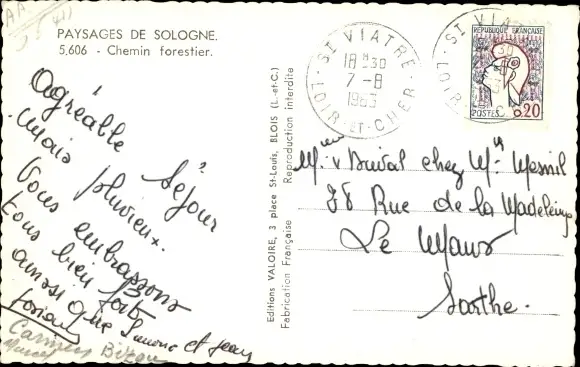 PAYSAGES DE SOLOGNE.
5.606 - Chemin forestier.
Agréable Séjour
Mais pluvieux.
Vous embrassons
tous bien forts
ainsi que et Jean
Carmen
Marcel
Editions VALOIRE, 3 place St-Louis, BLOIS (L.-et-C.)
Fabrication Française Reproduction interdite
ST VIATRE
18H30
7-8
1963
LOIR-ET-CHER
ST VIATRE
LOIR
REPUBLIQUE FRANÇAISE
POSTES
0,20
chez Mr Mesnil
78 Rue de la Madeleine
Le Mans
Sarthe.